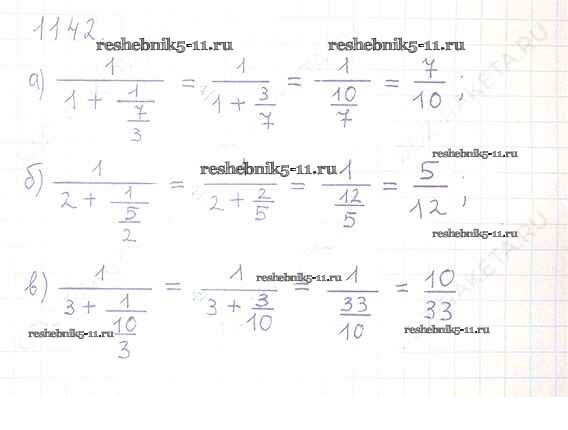 1142
reshebnik5-11.ru reshebnik5-11.ru
а) 1/(1 + 1/(7/3)) = 1/(1 + 3/7) = 1/(10/7) = 7/10 ;
reshebnik5-11.ru
reshebnik5-11.ru
б) 1/(2 + 1/(5/2)) = 1/(2 + 2/5) = 1/(12/5) = 5/12 ;
reshebnik5-11.ru
reshebnik5-11.ru
в) 1/(3 + 1/(10/3)) = 1/(3 + 3/10) = 1/(33/10) = 10/33
reshebnik5-11.ru reshebnik5-11.ru